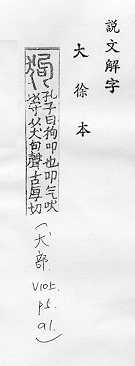 說文解字
大徐本
狗
孔子曰狗叩也叩气吠
以守从犬句聲古厚切
(犬部
V10上.
P5.
91.)